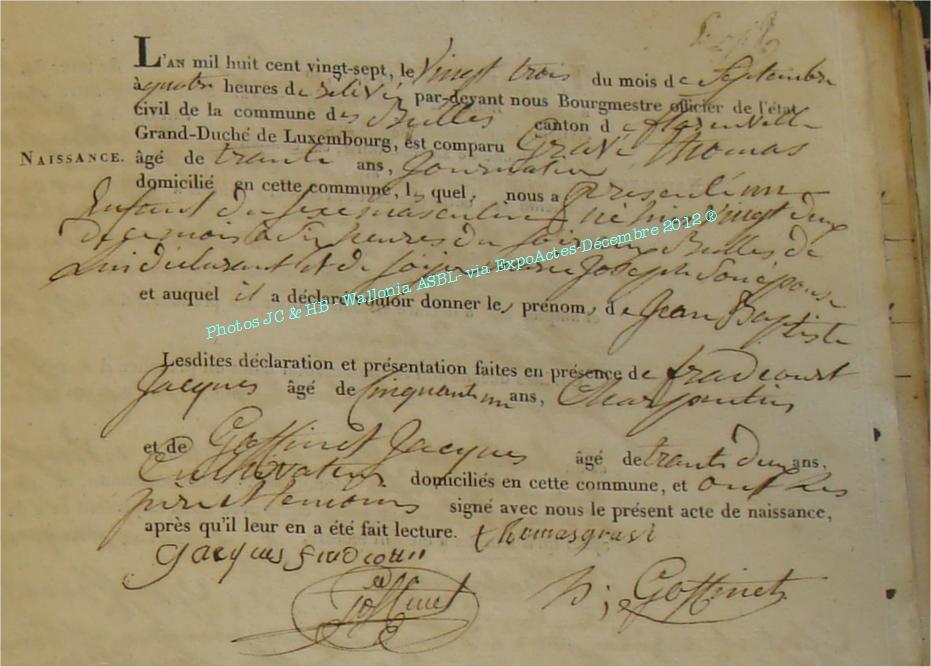 L'AN mil huit cent vingt-sept, le vingt trois du mois de Septembre
à quatre heures de relivé par-devant nous Bourgmestre officier de l'état
civil de la commune des Bulles canton de florenville
Grand-Duché de Luxembourg, est comparu Gravé thomas
NAISSANCE. âgé de trante ans, Journalier
domicilié en cette commune, lequel nous a présenté un
Enfant du sexe masculin né hier vingt deux
de ce mois à six heures du soir aux Bulles de
Lui déclarant et de marie Joseph épouse
et auquel il a déclaré vouloir donner les prénoms de Jean Baptiste
Photos JC & HB -Wallonia ASBL- via ExpoActes-Décembre 2012 ®
Lesdites déclaration et présentation faites en présence de fradcourt
Jacques âgé de Cinquant un ans, Charpentier
et de Goffinet Jacques âgé de trante deux ans,
Cultivateur domiciliés en cette commune, et ont les
pere et temoins signé avec nous le présent acte de naissance,
après qu'il leur en a été fait lecture. thomas gravé
Jacques
Goffinet
Goffinet